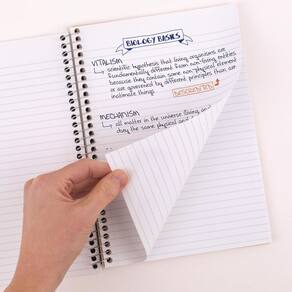 BIOLOGY BASICS
VITALISM
scientific hypothesis that living organisms are
fundamentally different from non-living entities
because they contain some non-physical element
or are governed by different principles than are
inanimate things.
DISCREDITED
MECHANISM
all matter in the universe (living and
obey the same physical and